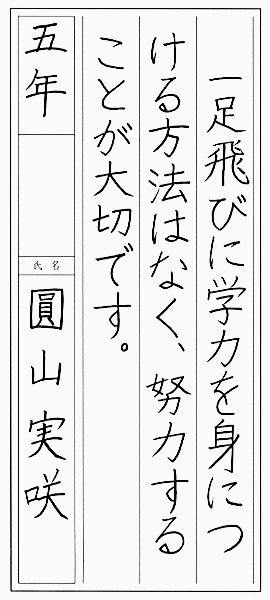 一足飛びに学力を身につ
ける方法はなく、努力する
ことが大切です。
五年
氏名
圓山実咲